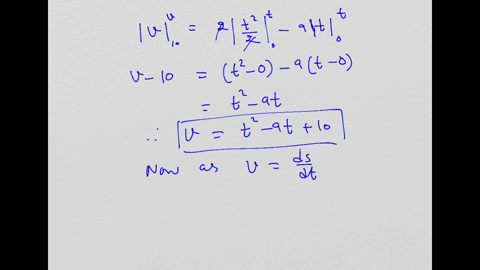 |v|₁₀ᵛ = 2|t²/2|₀ᵗ - 9|t|₀ᵗ
v-10 = (t²-0) - 9(t-0)
= t²-9t
∴ v = t²-9t+10
Now as v = ds/dt